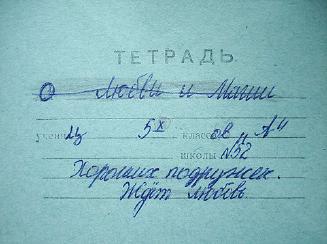 ТЕТРАДЬ
О Любви и Магии
учени из 5х классов "А"
школы №52
Хороших подружек.
Ждёт любовь